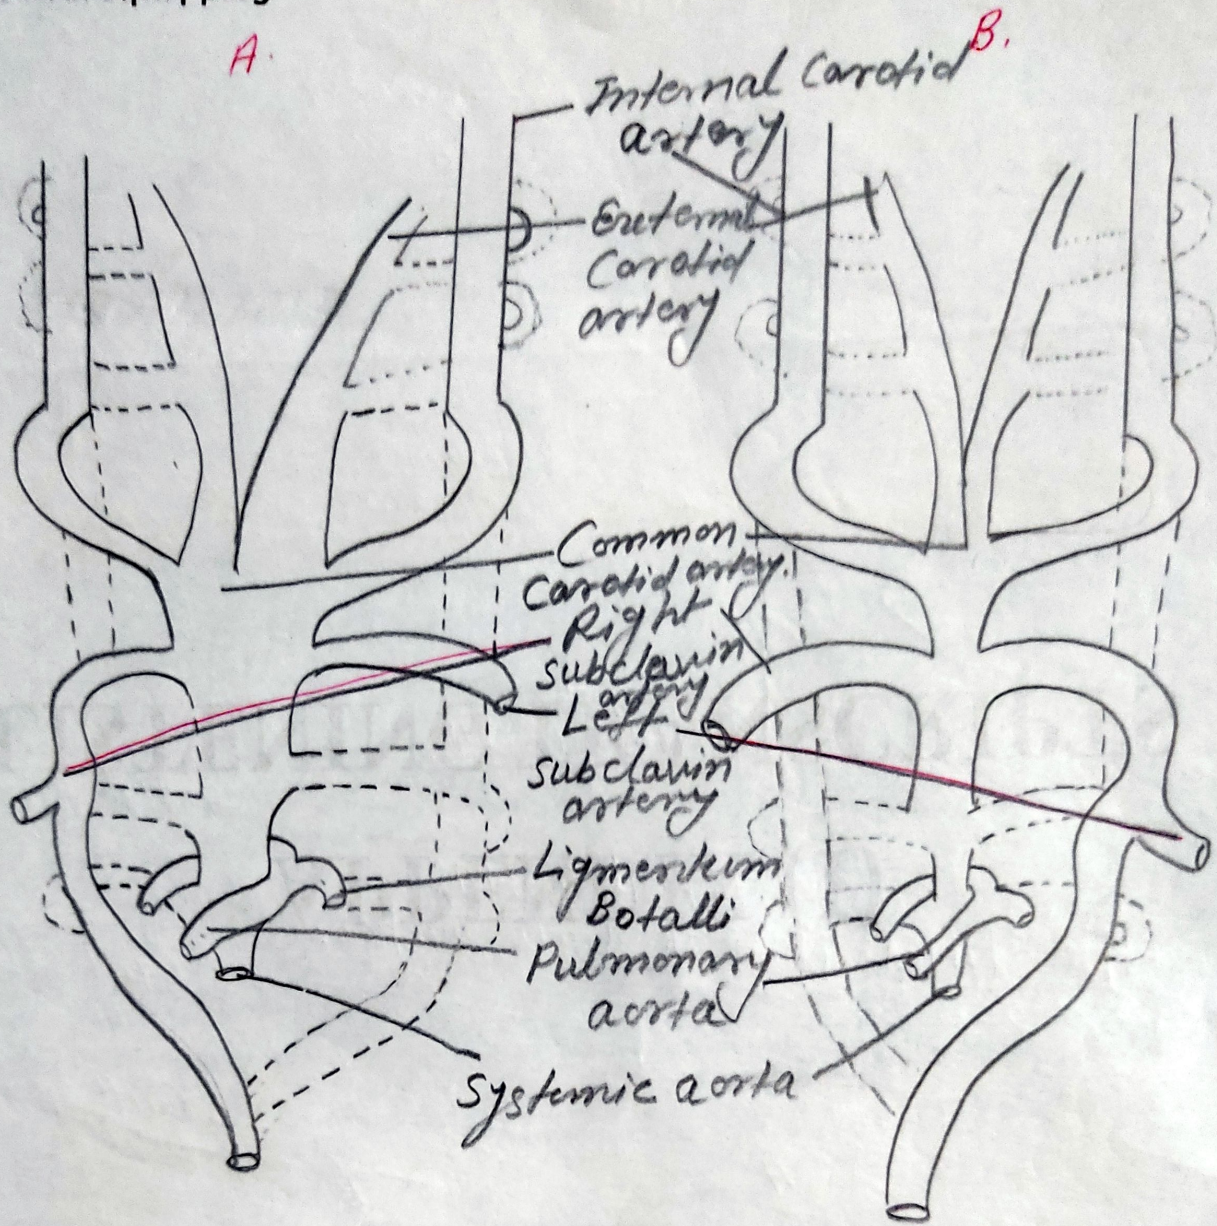 A.
B.
Internal Carotid
artery
Exeternal
Carotid
artery
Common
Carotid artery.
Right
subclavin
artery
Left
subclavin
artery
Ligmenteum
Botalli
Pulmonary
aorta
Systemic aorta